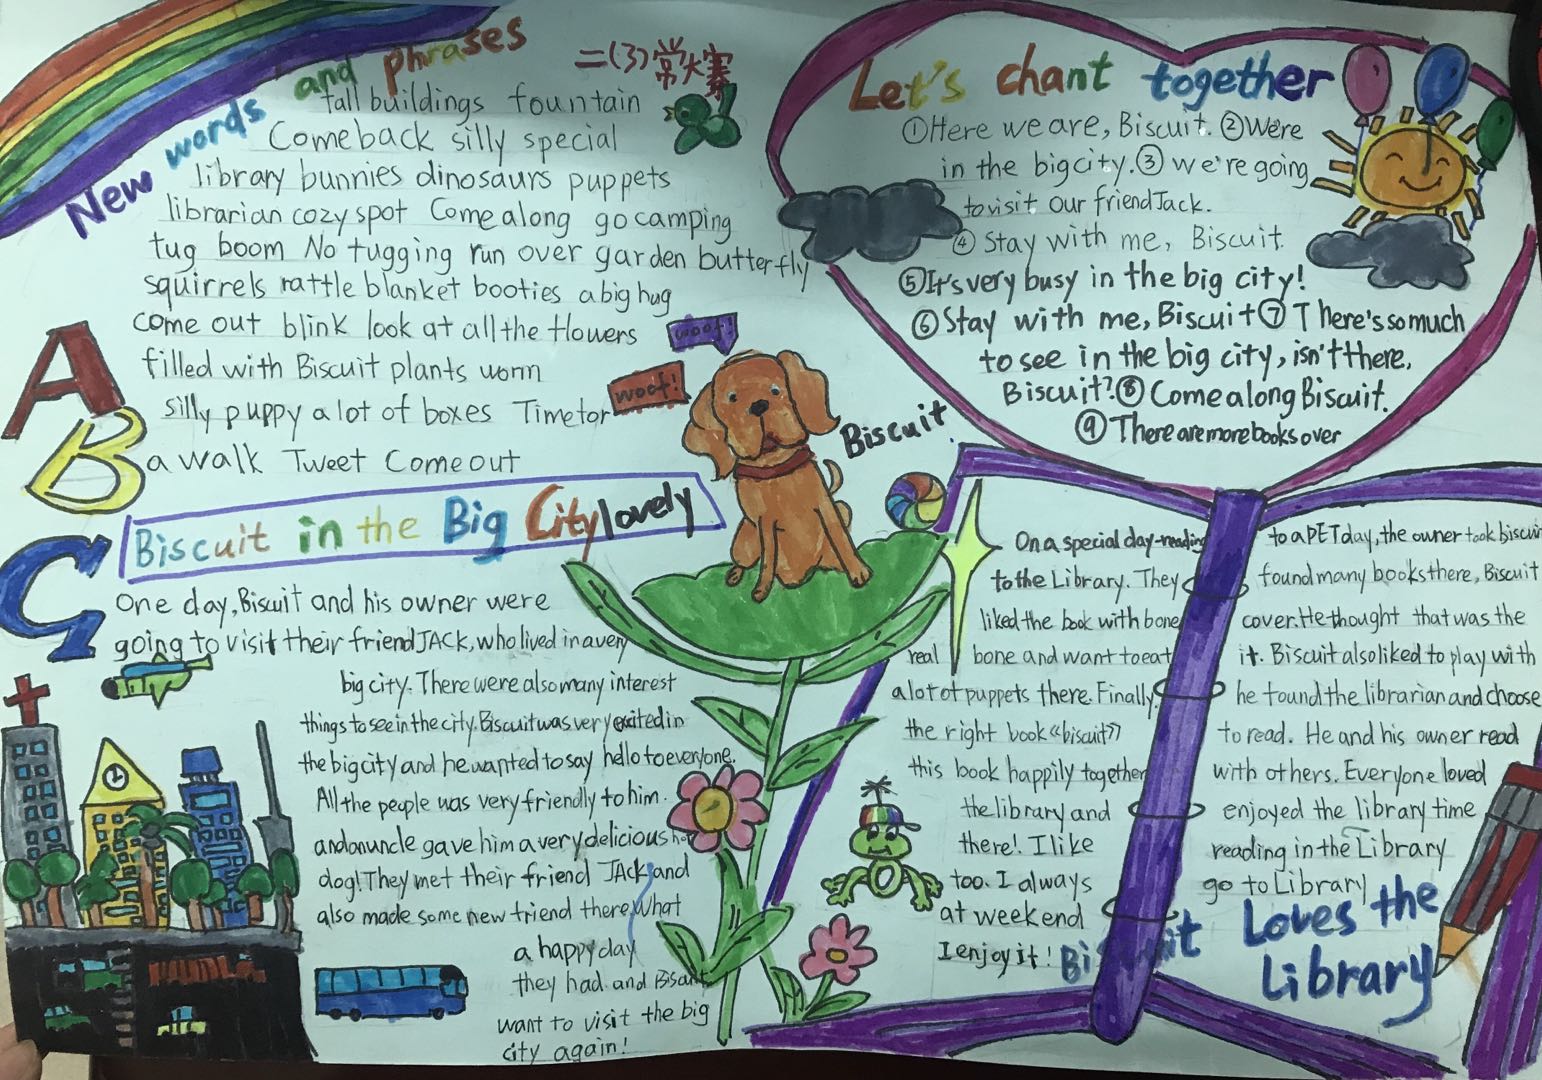 New words and phrases
二(3)常大寨
tall buildings fountain
Come back silly special
library bunnies dinosaurs puppets
librarian cozy spot Come along go camping
tug boom No tugging run over garden butterfly
squirrels rattle blanket booties a big hug
come out blink look at all the flowers
filled with Biscuit plants worm
silly puppy a lot of boxes Time for
a walk Tweet Come out
A
B
C
woof!
woof!
Biscuit
Let's chant together
①Here we are, Biscuit. ②We're
in the big city. ③ we're going
to visit our friend Jack.
④ Stay with me, Biscuit.
⑤It's very busy in the big city!
⑥ Stay with me, Biscuit ⑦ There's so much
to see in the big city, isn't there,
Biscuit? ⑧ Come along Biscuit.
⑨ There are more books over
Biscuit in the Big City lovely
One day, Biscuit and his owner were
going to visit their friend JACK, who lived in a very
big city. There were also many interest
things to see in the city. Biscuit was very excited in
the big city and he wanted to say hello to everyone.
All the people was very friendly to him.
and an uncle gave him a very delicious
dog! They met their friend JACK and
also made some new friend there. What
a happy day
they had and
want to visit the big
city again!
On a special day-reading to a PET day, the owner took
to the Library. They found many books there, Biscuit
liked the book with bone cover. He thought that was the
real bone and want to eat it. Biscuit also liked to play with
a lot of puppets there. Finally, he found the librarian and choose
the right book 《biscuit》 to read. He and his owner read
this book happily together with others. Everyone loved
the library and enjoyed the library time
there! I like reading in the Library
too. I always go to Library
at weekend
I enjoy it!
Biscuit Loves the
Library